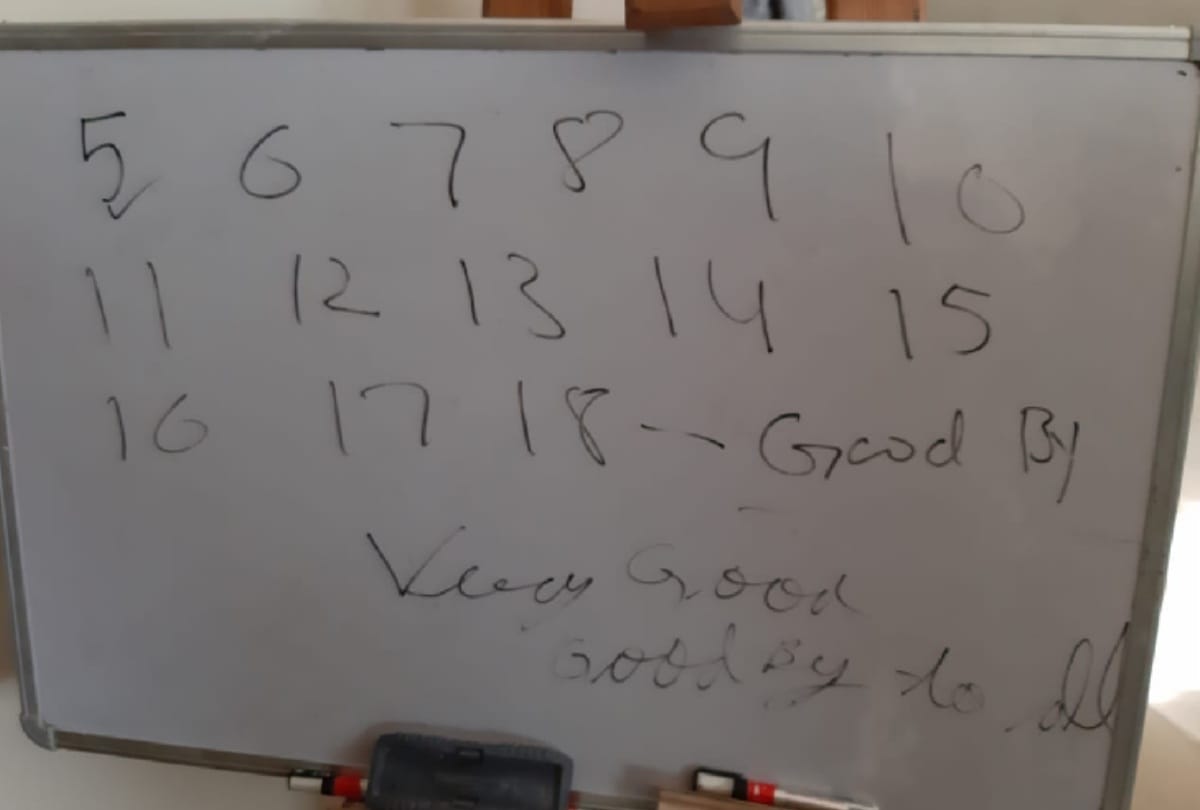 5 6 7 8 9 10
11 12 13 14 15
16 17 18 - Good By
Very Good
Good By to all